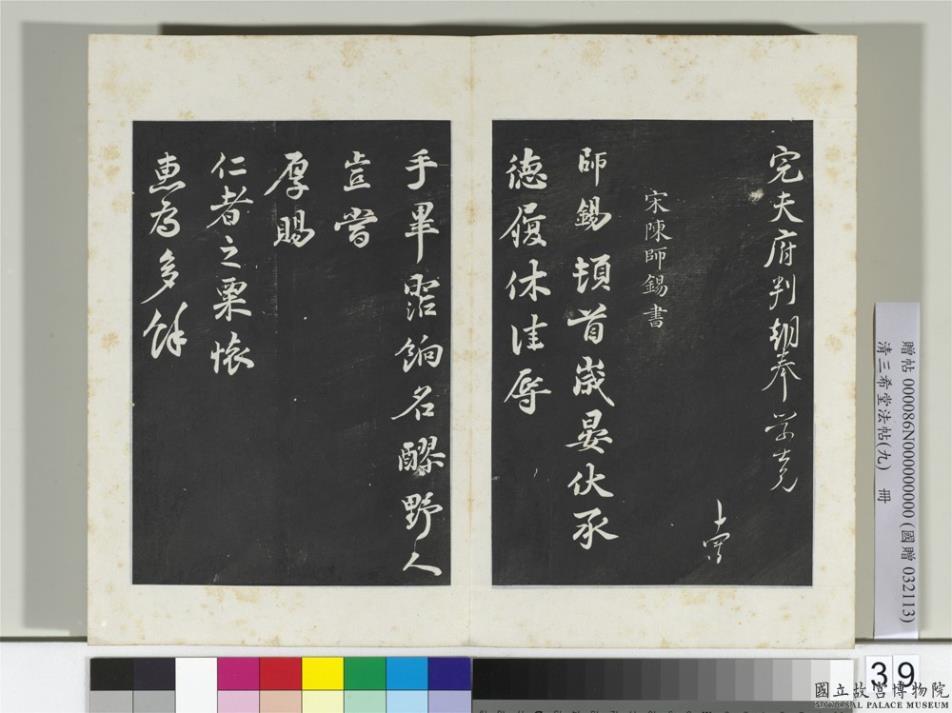 完夫府判朝奉學士兄
卜案
宋陳師錫書
師錫頓首歲晏伏承
德履休佳辱
手畢寵餉名醪野人
豈嘗
厚賜
仁者之粟懷
惠為多餘
贈帖 000086N000000000 (國贈 032113)
清三希堂法帖(九) 冊
39
國立故宮博物院
NATIONAL PALACE MUSEUM